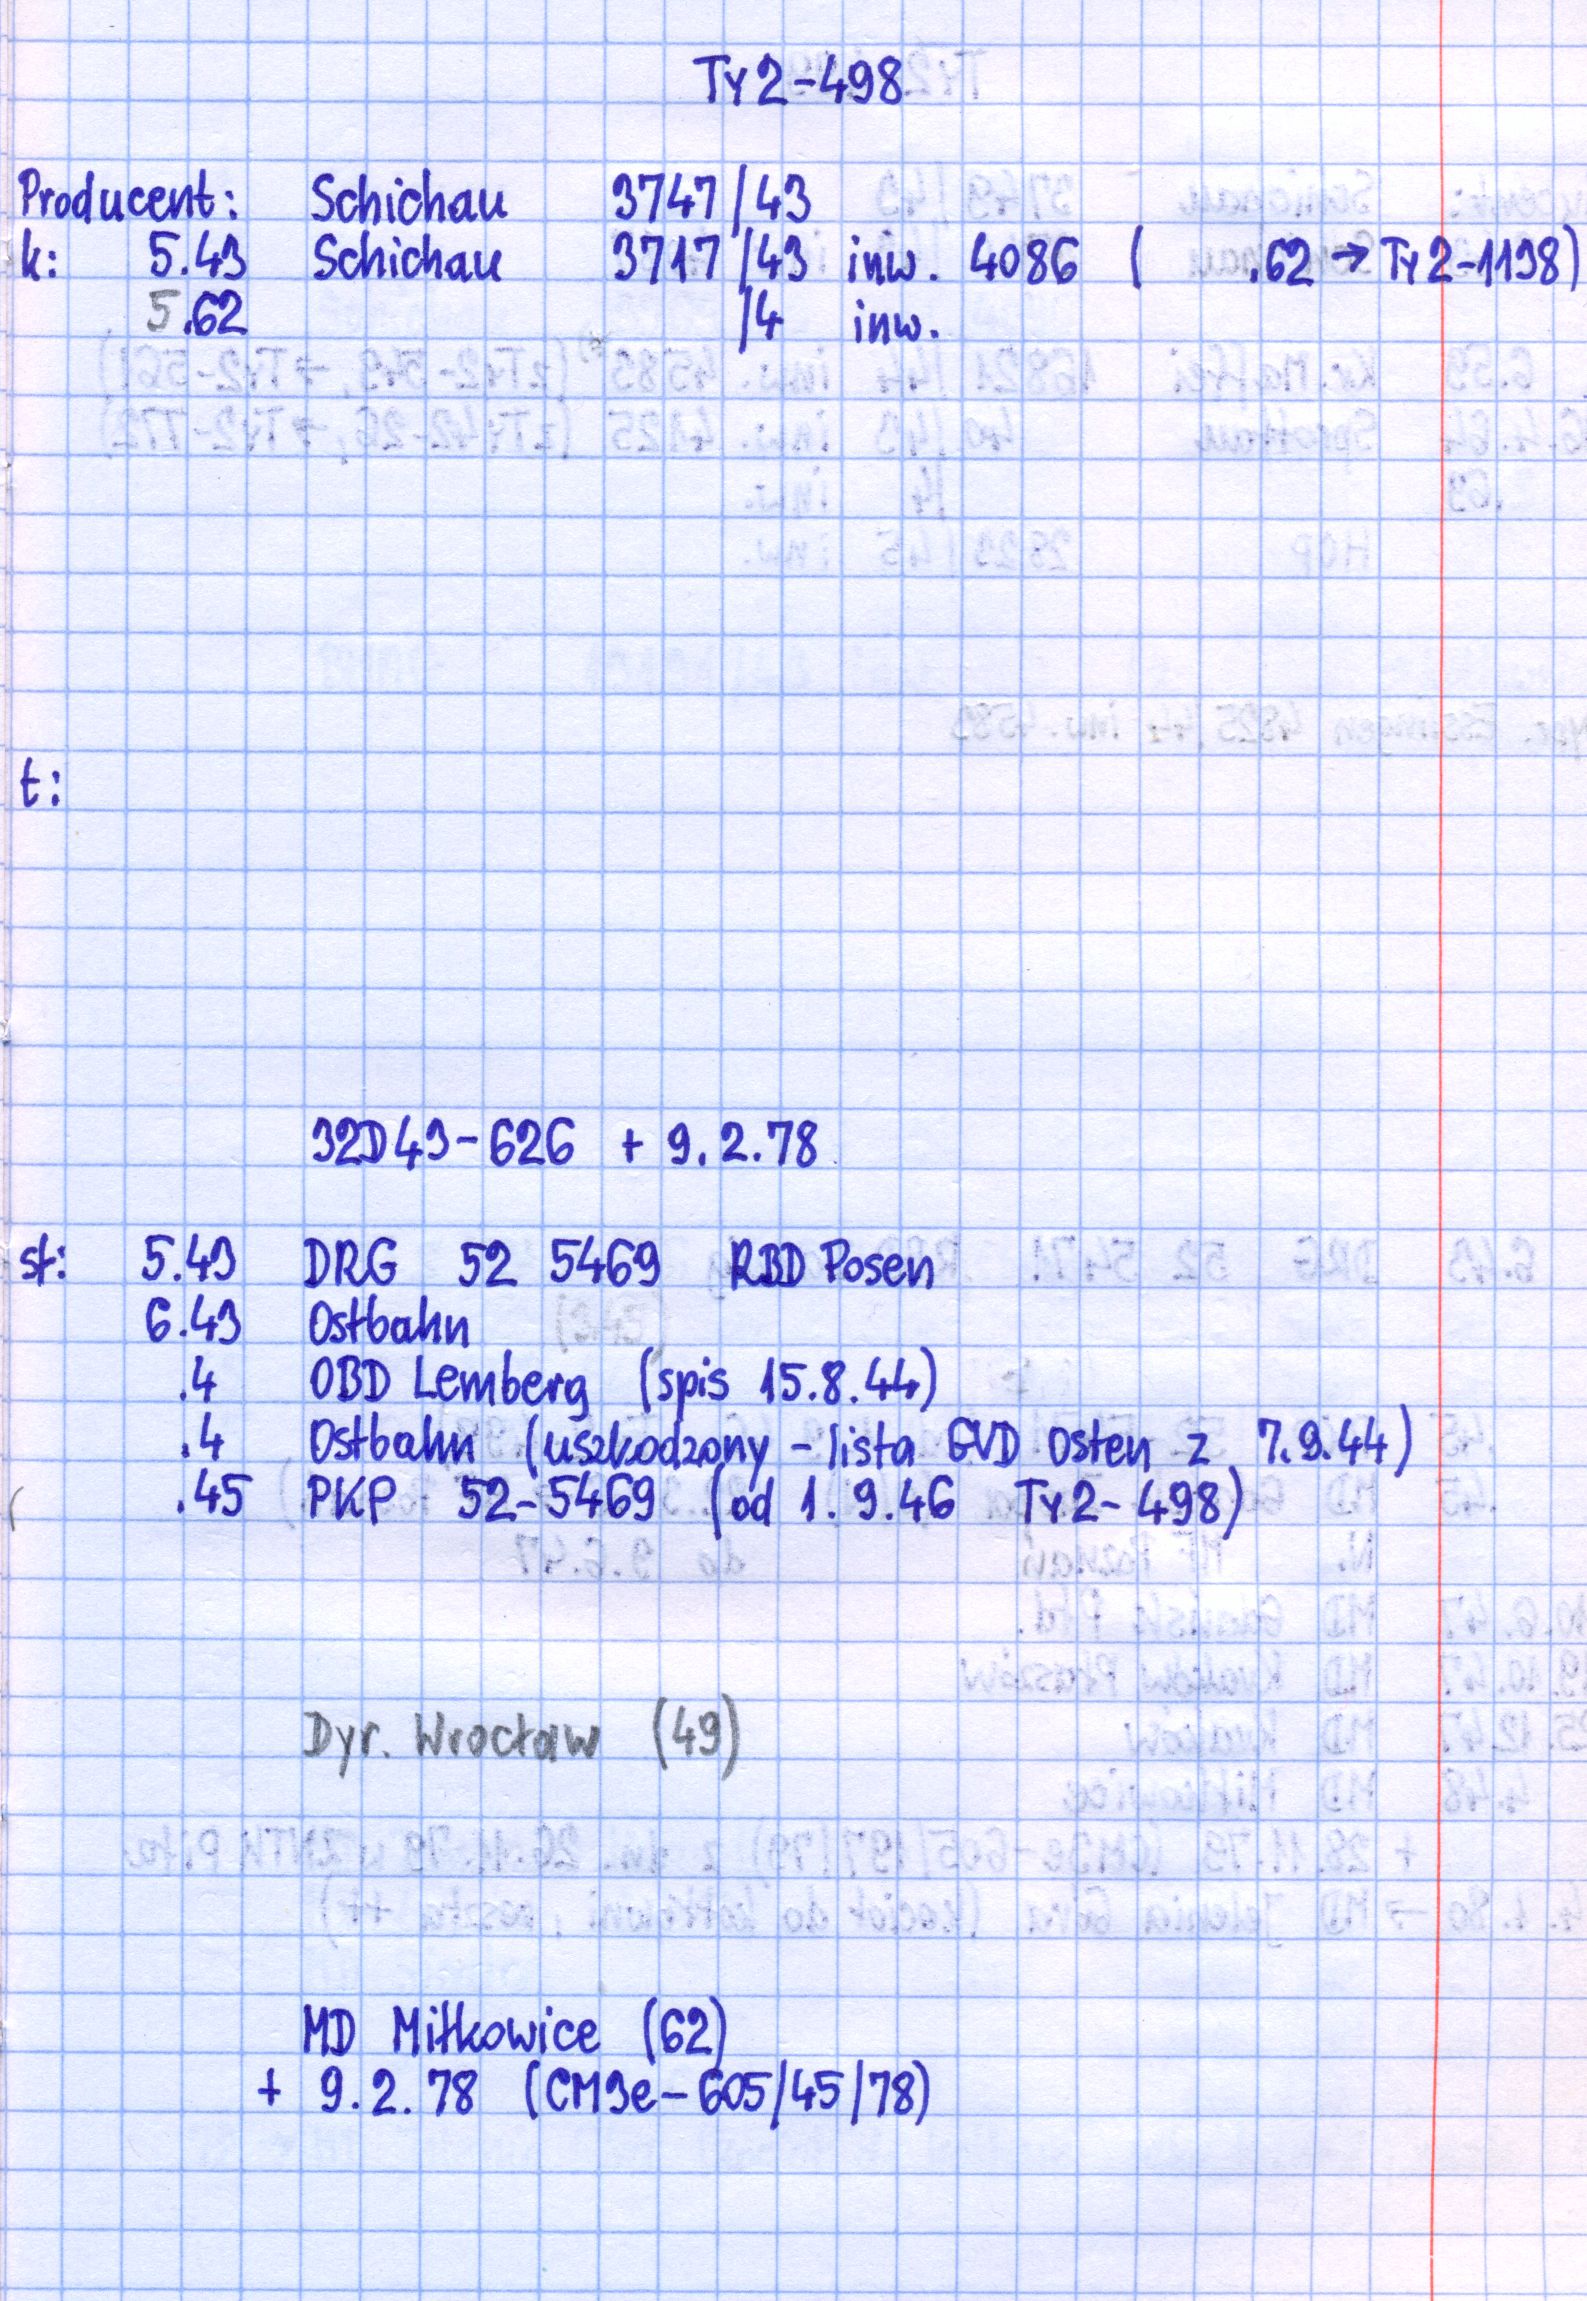 Ty2-498
Producent: Schichau 3747/43
k: 5.43 Schichau 3717/43 inw. 4086 ( .62 → Ty2-1198)
5.62 /4 inw.
t:
32D43-626 + 9.2.78
st: 5.43 DRG 52 5469 RBD Posen
6.43 Ostbahn
.4 OBD Lemberg (spis 15.8.44)
.4 Ostbahn (uszkodzony - lista GVD Osten z 7.9.44)
.45 PKP 52-5469 (od 1.9.46 Ty2-498)
Dyr. Wrocław (49)
MD Miłkowice (62)
+ 9.2.78 (CM3e-605/45/78)